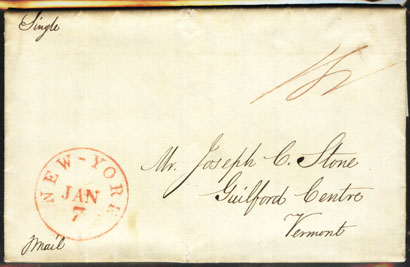 Single
Mr. Joseph C. Stone
Guilford Centre
Vermont
NEW-YORK
JAN
7
Mail